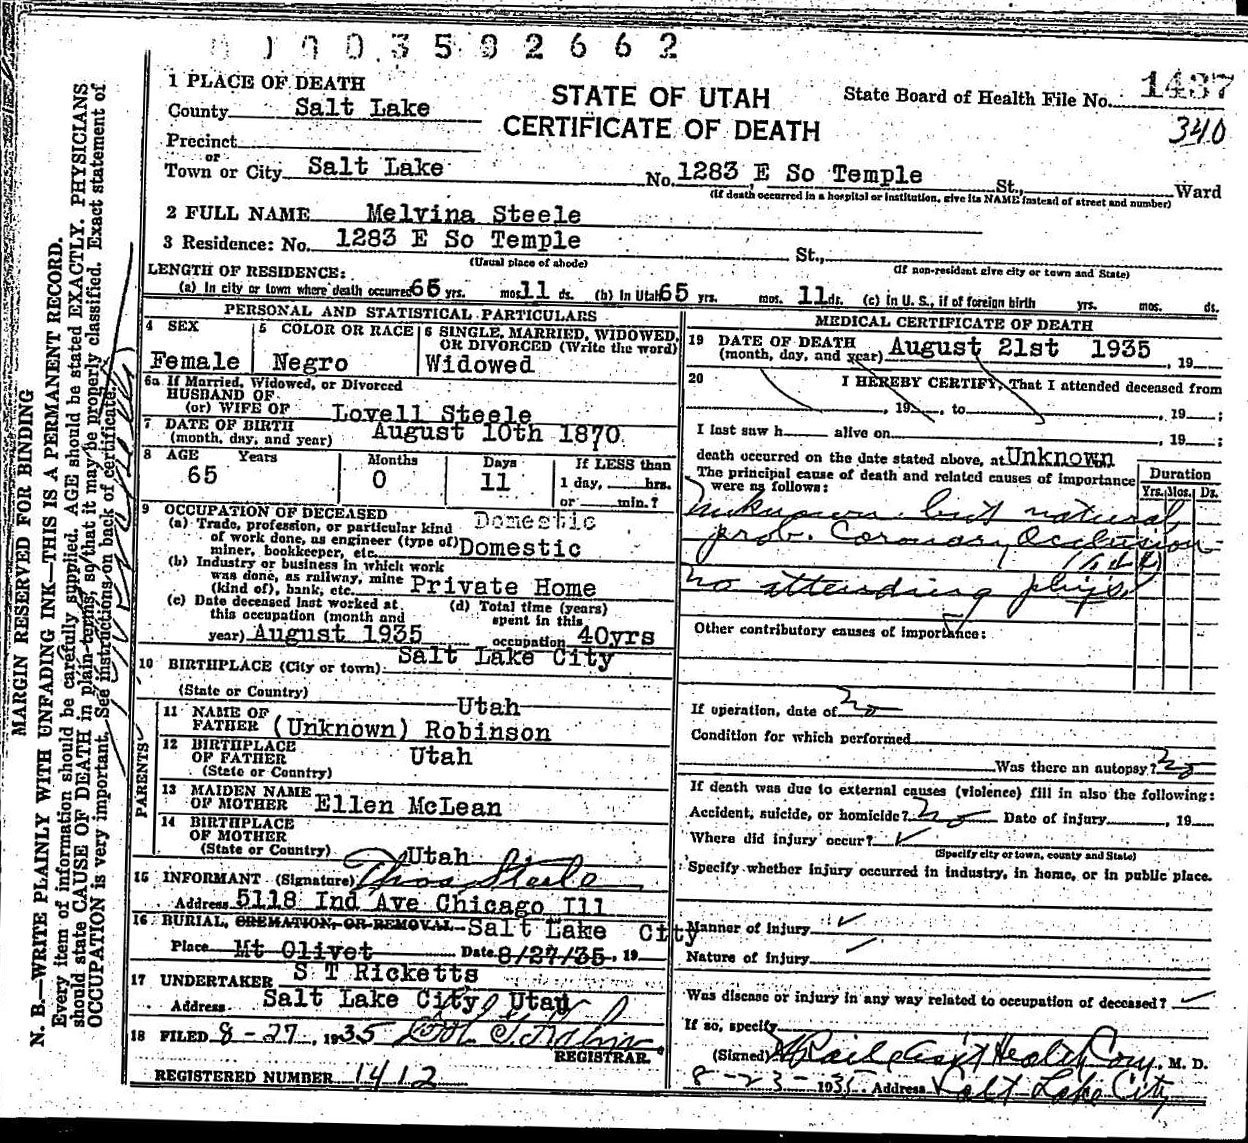 0 1 0 0 3 5 0 2 6 6 2
1 PLACE OF DEATH
County Salt Lake
STATE OF UTAH
CERTIFICATE OF DEATH
State Board of Health File No. 1437
340
Precinct
or
Town or City Salt Lake No. 1283 E So Temple St., Ward
(If death occurred in a hospital or institution, give its NAME instead of street and number)
2 FULL NAME Melvina Steele
3 Residence: No. 1283 E So Temple St.,
(Usual place of abode) (If non-resident give city or town and State)
LENGTH OF RESIDENCE:
(a) In city or town where death occurred 65 yrs. mos. 11 ds. (b) In Utah 65 yrs. mos. 11 ds. (c) in U. S., if of foreign birth yrs. mos. ds.
PERSONAL AND STATISTICAL PARTICULARS
4 SEX Female
5 COLOR OR RACE Negro
6 SINGLE, MARRIED, WIDOWED, OR DIVORCED (Write the word) Widowed
6a If Married, Widowed, or Divorced
HUSBAND OF
(or) WIFE OF Lovell Steele
7 DATE OF BIRTH
(month, day, and year) August 10th 1870
8 AGE Years Months Days If LESS than
65 0 11 1 day, hrs.
or min.?
9 OCCUPATION OF DECEASED
(a) Trade, profession, or particular kind Domestic
of work done, as engineer (type of)
miner, bookkeeper, etc. Domestic
(b) Industry or business in which work
was done, as railway, mine
(kind of), bank, etc. Private Home
(c) Date deceased last worked at
this occupation (month and
year) August 1935
(d) Total time (years)
spent in this
occupation 40yrs
10 BIRTHPLACE (City or town) Salt Lake City
(State or Country) Utah
PARENTS
11 NAME OF
FATHER (Unknown) Robinson
12 BIRTHPLACE
OF FATHER Utah
(State or Country)
13 MAIDEN NAME
OF MOTHER Ellen McLean
14 BIRTHPLACE
OF MOTHER
(State or Country) Utah
15 INFORMANT (Signature) Thos Steele
Address 5118 Ind Ave Chicago Ill
16 BURIAL, CREMATION, OR REMOVAL Salt Lake City
Place Mt Olivet Date 8/27/35, 19
17 UNDERTAKER S T Ricketts
Address Salt Lake City Utah
18 FILED 8-27, 1935
REGISTRAR.
REGISTERED NUMBER 1412
MEDICAL CERTIFICATE OF DEATH
19 DATE OF DEATH
(month, day, and year) August 21st 1935, 19
20 I HEREBY CERTIFY, That I attended deceased from
, 19 , to , 19 ;
I last saw h alive on , 19 ;
death occurred on the date stated above, at Unknown
The principal cause of death and related causes of importance
were as follows:
Duration
Yrs. Mos. Ds.
Unknown but natural
prob. Coronary Occlusion
no attending phys.
Other contributory causes of importance:
If operation, date of no
Condition for which performed
Was there an autopsy? no
If death was due to external causes (violence) fill in also the following:
Accident, suicide, or homicide? no Date of injury , 19
Where did injury occur?
(Specify city or town, county and State)
Specify whether injury occurred in industry, in home, or in public place.
Manner of injury
Nature of injury
Was disease or injury in any way related to occupation of deceased?
If so, specify
(Signed) Health Com. M. D.
8-23-1935 Address Salt Lake City
MARGIN RESERVED FOR BINDING
N. B.—WRITE PLAINLY WITH UNFADING INK—THIS IS A PERMANENT RECORD.
Every item of information should be carefully supplied. AGE should be stated EXACTLY. PHYSICIANS
should state CAUSE OF DEATH in plain terms, so that it may be properly classified. Exact statement of
OCCUPATION is very important. See instructions on back of certificate.